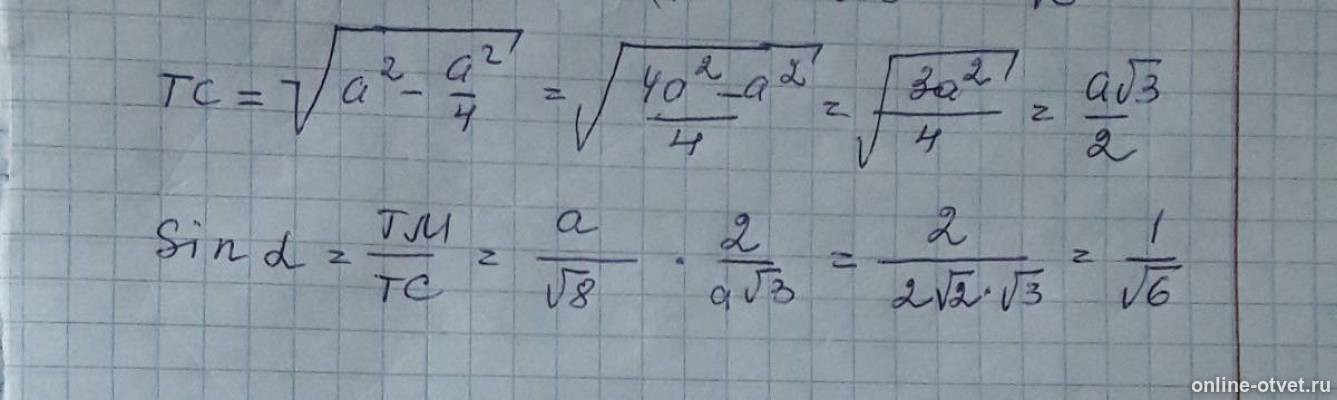 TC = √(a² - a²/4) = √((4a² - a²)/4) = √(3a²/4) = a√3/2
Sin α = TM/TC = a/√8 · 2/a√3 = 2/2√2·√3 = 1/√6
online-otvet.ru